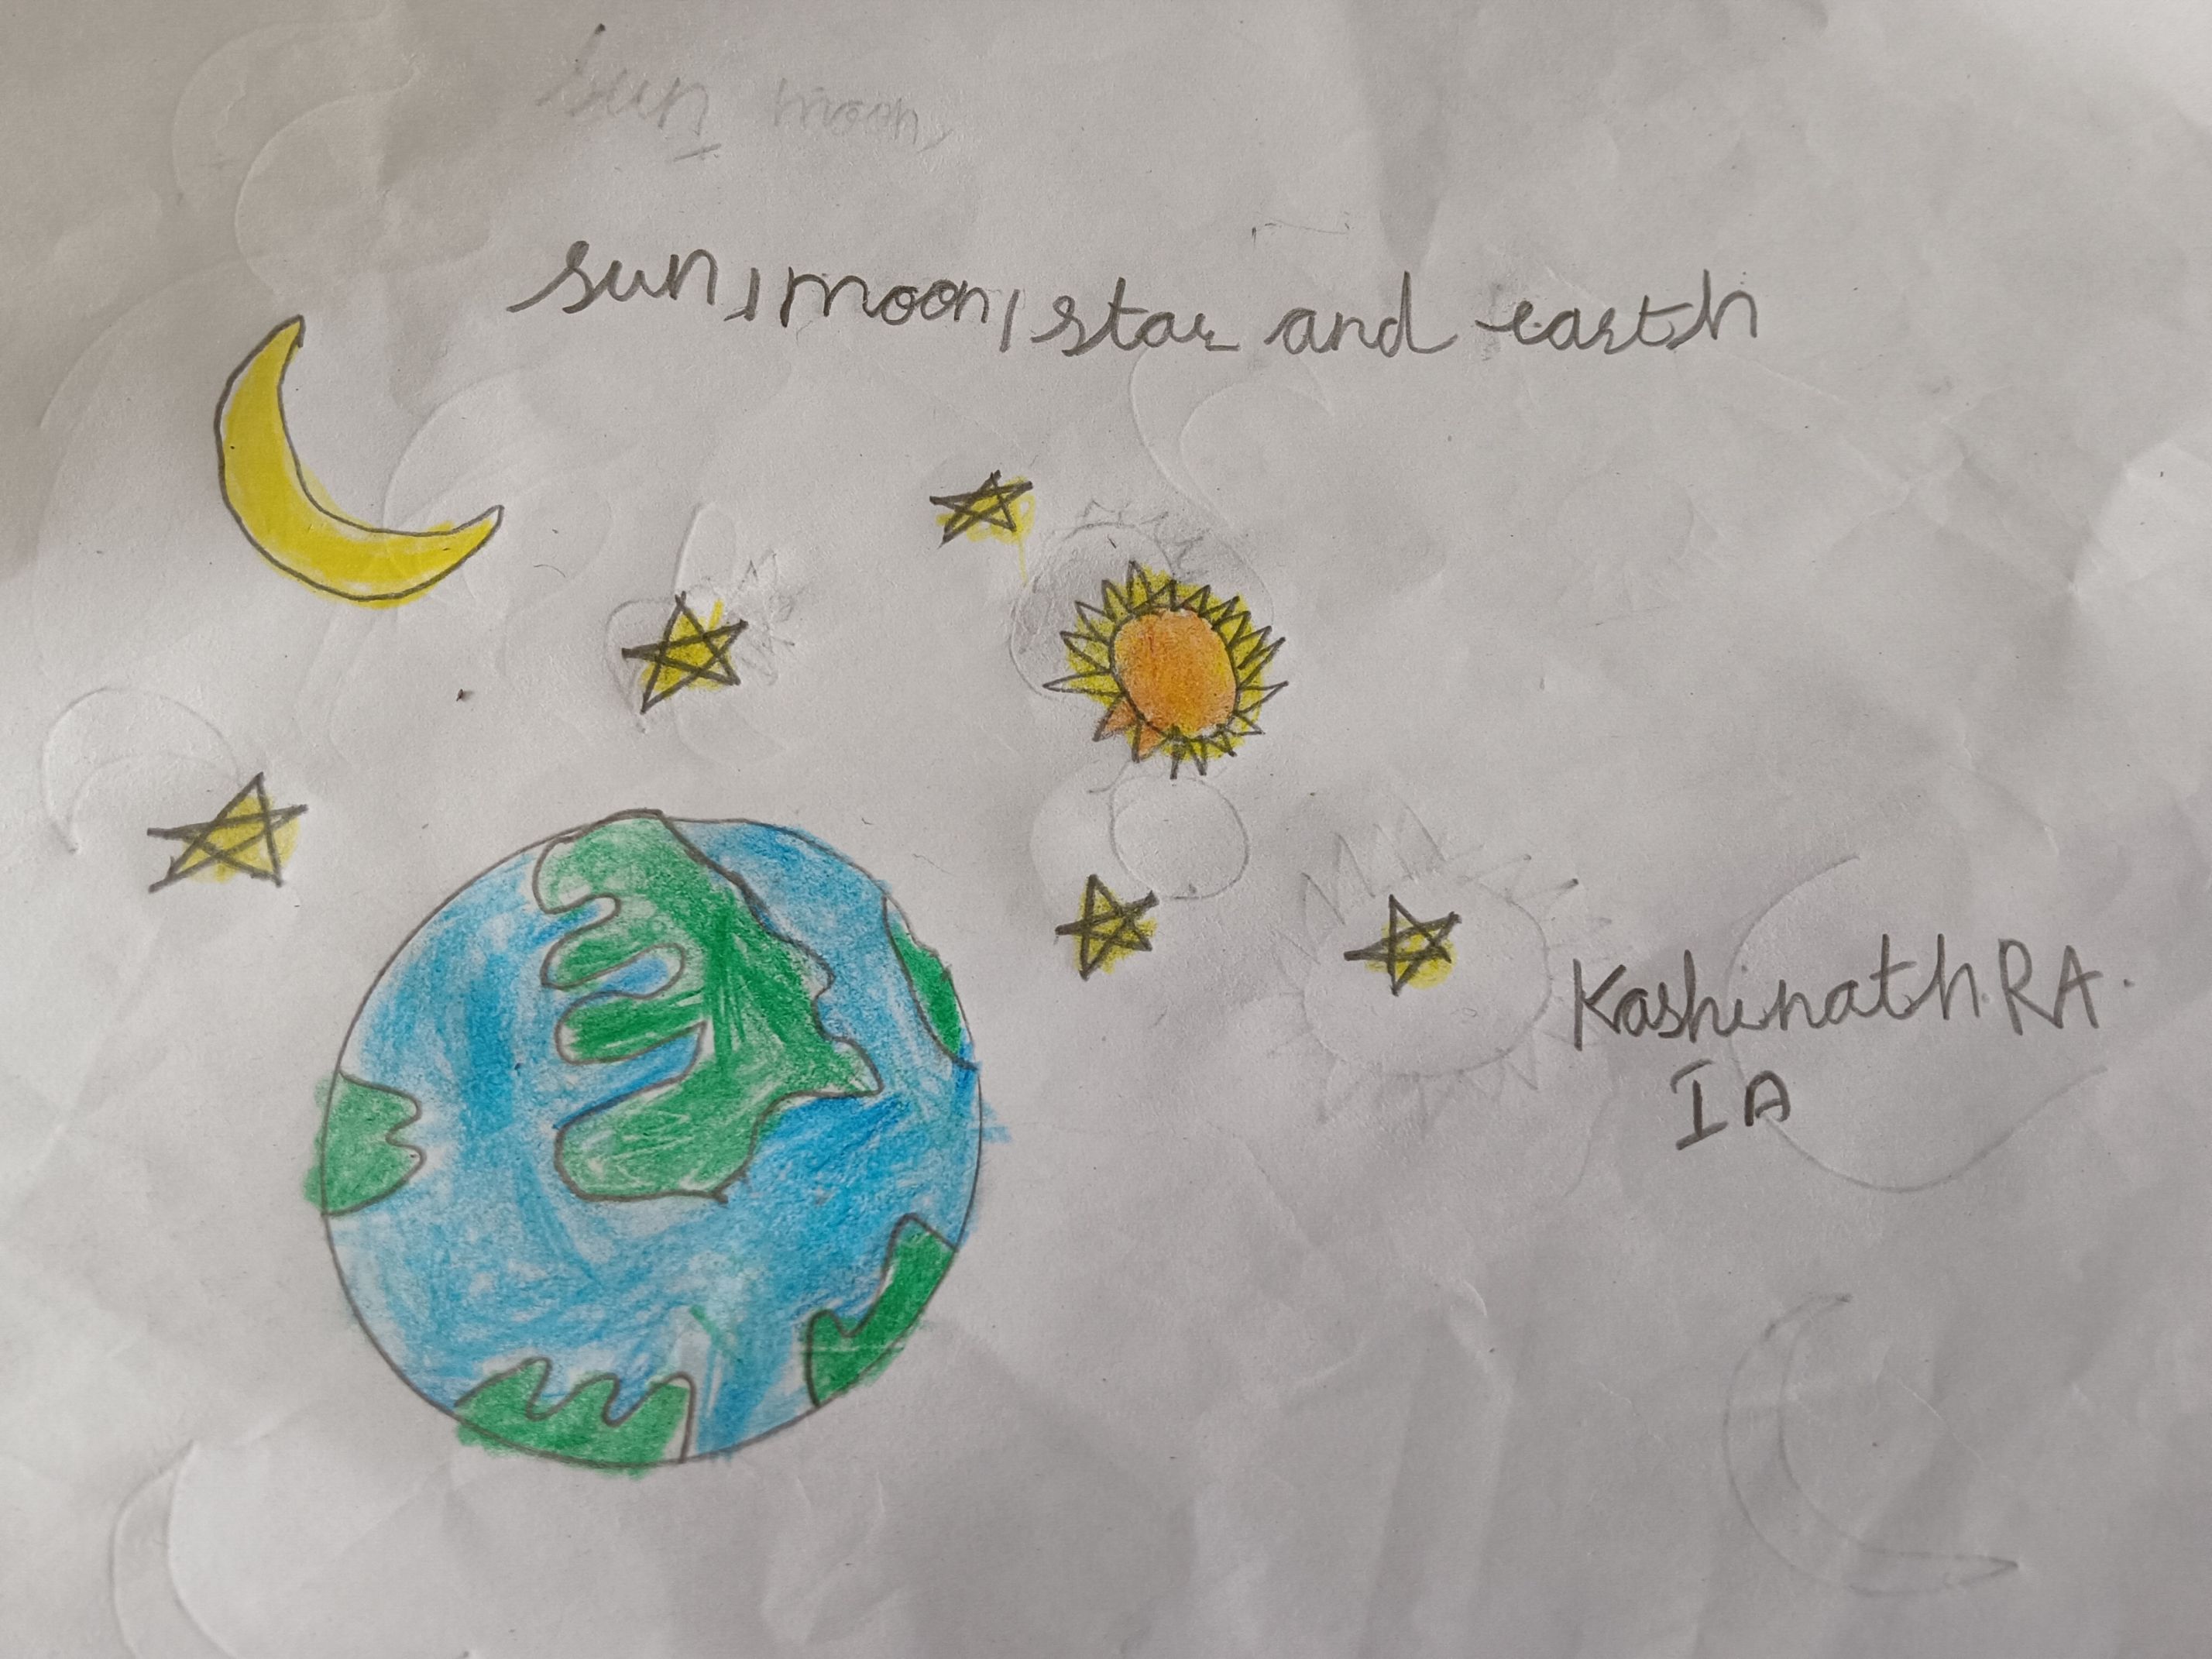 sun moon,
sun, moon, star and earth
Kashinath.R A.
I A